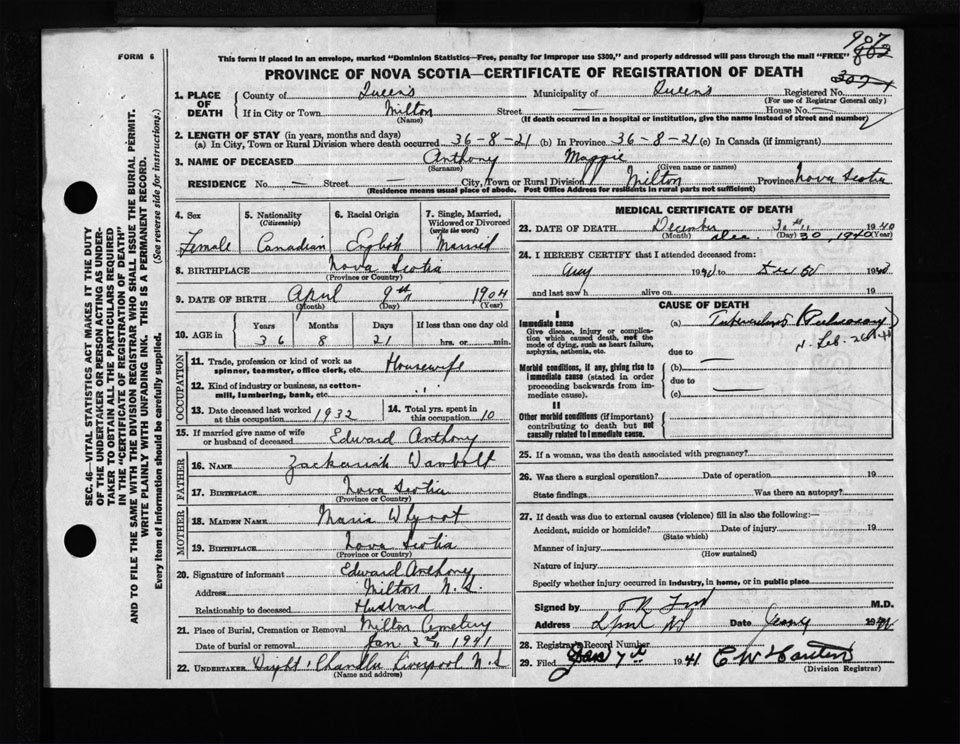 907
FORM 6
This form if placed in an envelope, marked "Dominion Statistics—Free, penalty for improper use $300," and properly addressed will pass through the mail "FREE"
862
3074
PROVINCE OF NOVA SCOTIA—CERTIFICATE OF REGISTRATION OF DEATH
1. PLACE OF DEATH
County of Queens Municipality of Queens Registered No.
(For use of Registrar General only)
If in City or Town Milton Street — House No. —
(Name) (If death occurred in a hospital or institution, give the name instead of street and number)
2. LENGTH OF STAY (in years, months and days)
(a) In City, Town or Rural Division where death occurred 36-8-21 (b) In Province 36-8-21 (c) In Canada (if immigrant)
3. NAME OF DECEASED Anthony Maggie
(Surname) (Given name or names)
RESIDENCE No. — Street — City, Town or Rural Division Milton Province Nova Scotia
(Residence means usual place of abode. Post Office Address for residents in rural parts not sufficient)
4. Sex
Female
5. Nationality (Citizenship)
Canadian
6. Racial Origin
English
7. Single, Married, Widowed or Divorced (write the word)
Married
8. BIRTHPLACE Nova Scotia
(Province or Country)
9. DATE OF BIRTH April 9th 1904
(Month) (Day) (Year)
10. AGE in
Years Months Days If less than one day old
36 8 21 hrs. or min.
OCCUPATION
11. Trade, profession or kind of work as spinner, teamster, office clerk, etc. Housewife
12. Kind of industry or business, as cotton-mill, lumbering, bank, etc. " "
13. Date deceased last worked at this occupation 1932
14. Total yrs. spent in this occupation 10
15. If married give name of wife or husband of deceased Edward Anthony
FATHER
16. NAME Zackariah Wambolt
17. BIRTHPLACE Nova Scotia
(Province or Country)
MOTHER
18. MAIDEN NAME Maria Whynot
19. BIRTHPLACE Nova Scotia
(Province or Country)
20. Signature of informant Edward Anthony
Address Milton N.S.
Relationship to deceased Husband
21. Place of Burial, Cremation or Removal Milton Cemetery
Date of burial or removal Jan 2nd 1941
22. UNDERTAKER Chandler Liverpool N.S
(Name and address)
MEDICAL CERTIFICATE OF DEATH
23. DATE OF DEATH December 30th 1940
(Month) Dec. (Day) 30, 1940 (Year)
24. I HEREBY CERTIFY that I attended deceased from:
1940 to Dec 1940
and last saw h alive on 19
CAUSE OF DEATH
I
Immediate cause
Give disease, injury or complication which caused death, not the mode of dying, such as heart failure, asphyxia, asthenia, etc.
(a) Tuberculosis (Pulmonary)
Feb.
due to —
Morbid conditions, if any, giving rise to immediate cause (stated in order proceeding backwards from immediate cause).
(b)
due to —
(c)
II
Other morbid conditions (if important) contributing to death but not causally related to immediate cause.
25. If a woman, was the death associated with pregnancy?
26. Was there a surgical operation? Date of operation 19
State findings Was there an autopsy?
27. If death was due to external causes (violence) fill in also the following:—
Accident, suicide or homicide? Date of injury 19
(State which)
Manner of injury
(How sustained)
Nature of injury
Specify whether injury occurred in industry, in home, or in public place
Signed by M.D.
Address Date 19
28. Registrar's Record Number
29. Filed Jan 7th 1941
(Division Registrar)
SEC. 46—VITAL STATISTICS ACT MAKES IT THE DUTY
OF THE UNDERTAKER OR PERSON ACTING AS UNDER-
TAKER TO OBTAIN ALL THE PARTICULARS REQUIRED
IN THE "CERTIFICATE OF REGISTRATION OF DEATH"
AND TO FILE THE SAME WITH THE DIVISION REGISTRAR WHO SHALL ISSUE THE BURIAL PERMIT.
WRITE PLAINLY WITH UNFADING INK. THIS IS A PERMANENT RECORD.
Every item of information should be carefully supplied. (See reverse side for instructions.)